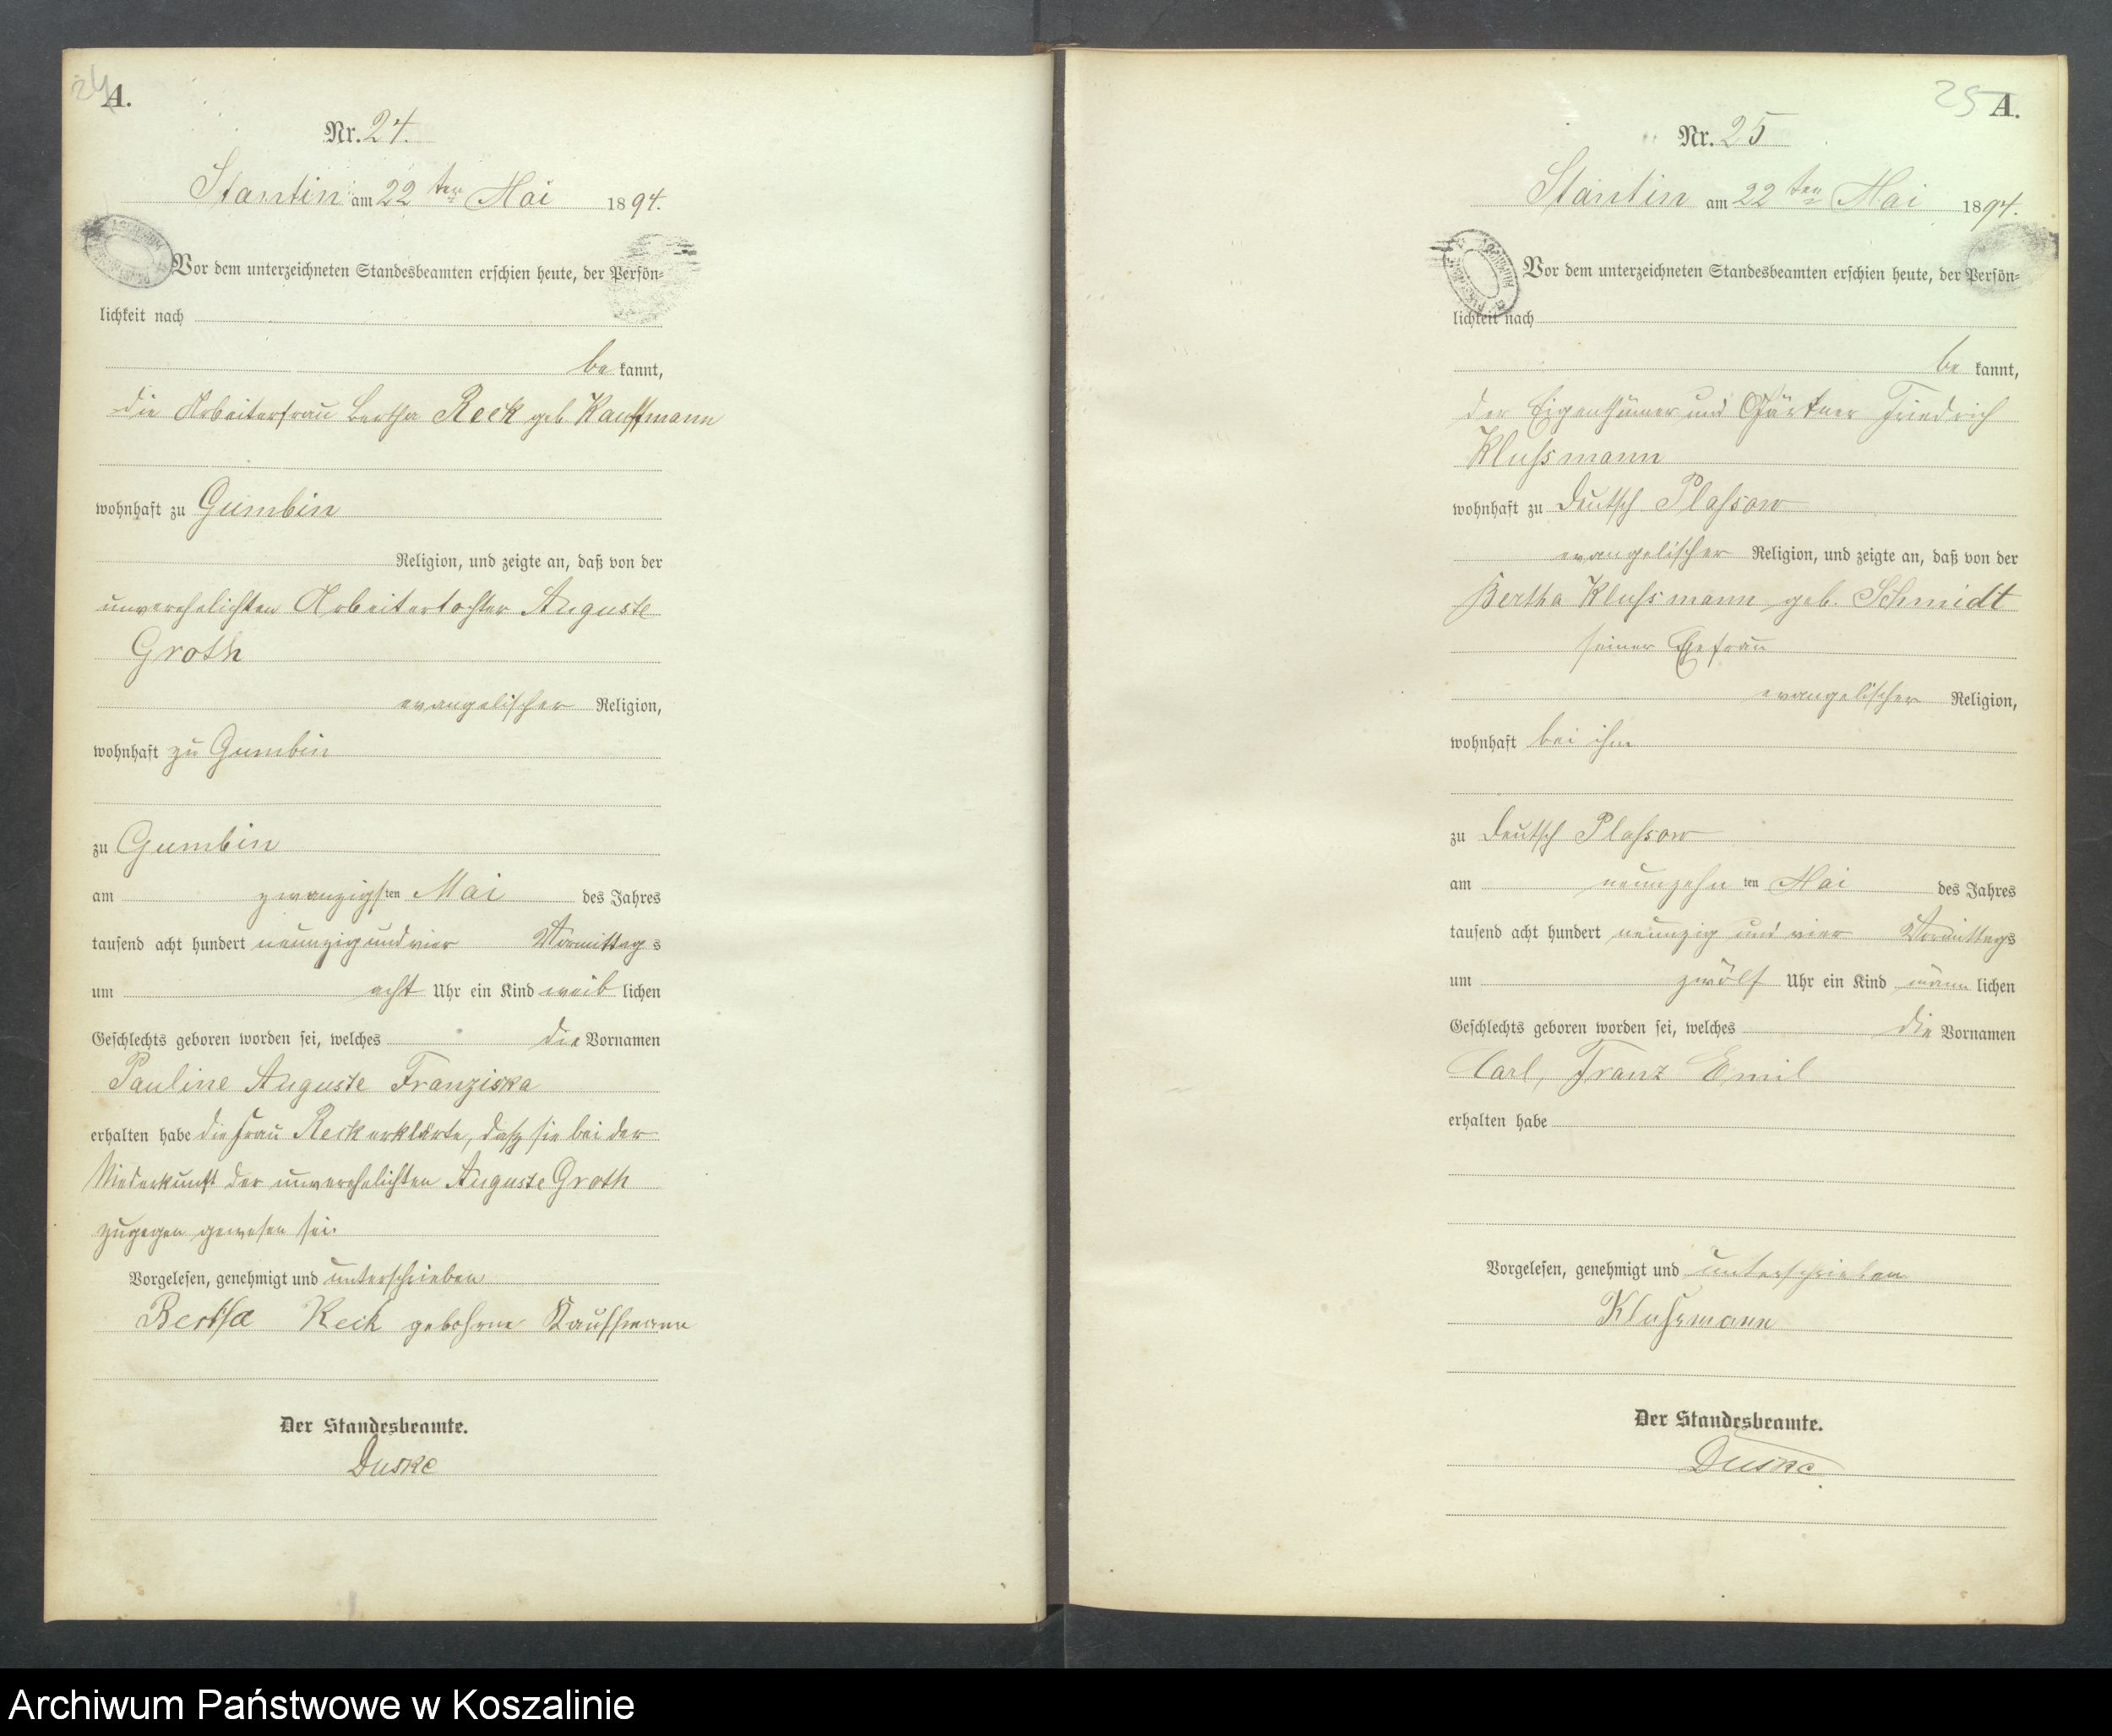 24
A.
Nr. 24.
Stantin am 22ten Mai 1894.
Vor dem unterzeichneten Standesbeamten erschien heute, der Persön=
lichkeit nach
be kannt,
die Arbeiterfrau Bertha Reck geb. Kauffmann
wohnhaft zu Gumbin
Religion, und zeigte an, daß von der
unverehelichten Arbeitertochter Auguste
Groth
evangelischer Religion,
wohnhaft zu Gumbin
zu Gumbin
am zwanzigsten Mai des Jahres
tausend acht hundert neunzig und vier Vormittags
um acht Uhr ein Kind weiblichen
Geschlechts geboren worden sei, welches die Vornamen
Pauline Auguste Franziska
erhalten habe die Frau Reck erklärte, daß sie bei der
Niederkunft der unverehelichten Auguste Groth
zugegen gewesen sei.
Vorgelesen, genehmigt und unterschrieben
Bertha Reck gebohrne Kauffmann
Der Standesbeamte.
Duske
25
A.
Nr. 25
Stantin am 22ten Mai 1894.
Vor dem unterzeichneten Standesbeamten erschien heute, der Persön=
lichkeit nach
be kannt,
der Eigenthümer und Gärtner Friedrich
Klußmann
wohnhaft zu Deutsch Plaßow
evangelischer Religion, und zeigte an, daß von der
Bertha Klußmann geb. Schmidt
seiner Ehefrau
evangelischer Religion,
wohnhaft bei ihm
zu Deutsch Plaßow
am neunzehnten Mai des Jahres
tausend acht hundert neunzig und vier Vormittags
um zwölf Uhr ein Kind männlichen
Geschlechts geboren worden sei, welches die Vornamen
Carl, Franz Emil
erhalten habe
Vorgelesen, genehmigt und unterschrieben
Klußmann
Der Standesbeamte.
Duske
Archiwum Państwowe w Koszalinie